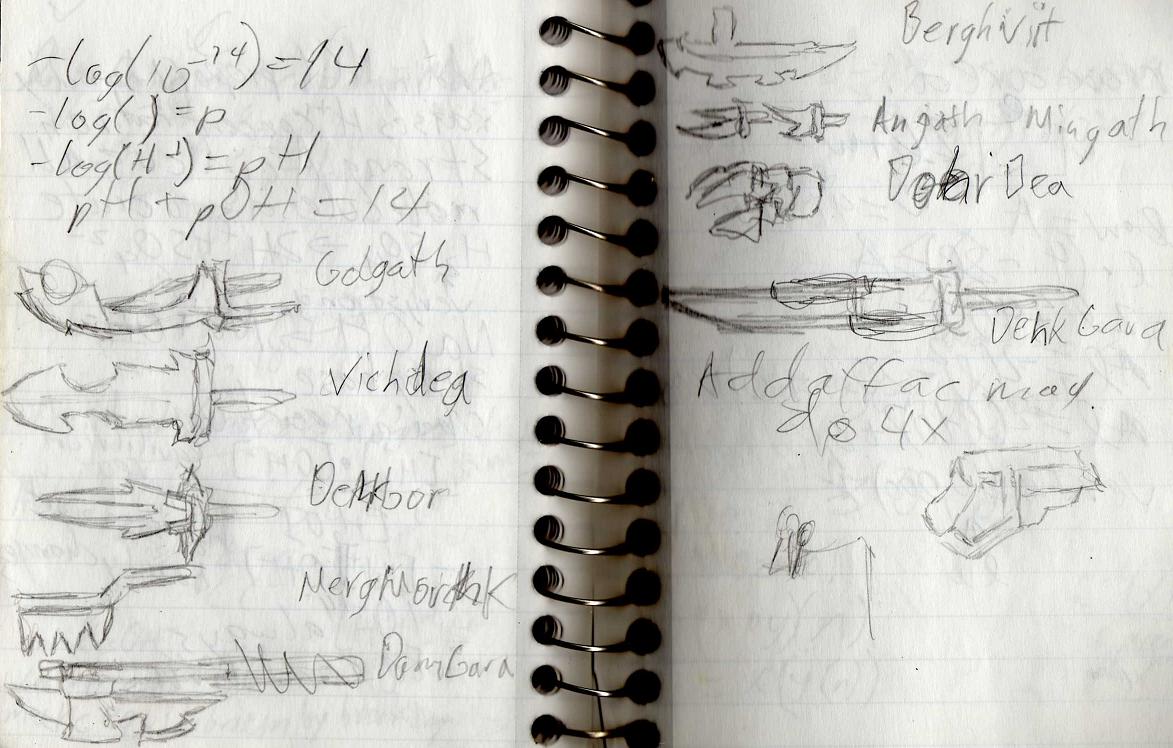 -log(10⁻¹⁴)=14
-log( )=p
-log(H⁺)=pH
pH+pOH=14
Golgath
Vichdea
Dehkbor
DomGara
Berghviit
Angath Mingath
Dea
Dehk Gara
Addaffac may
do 4x